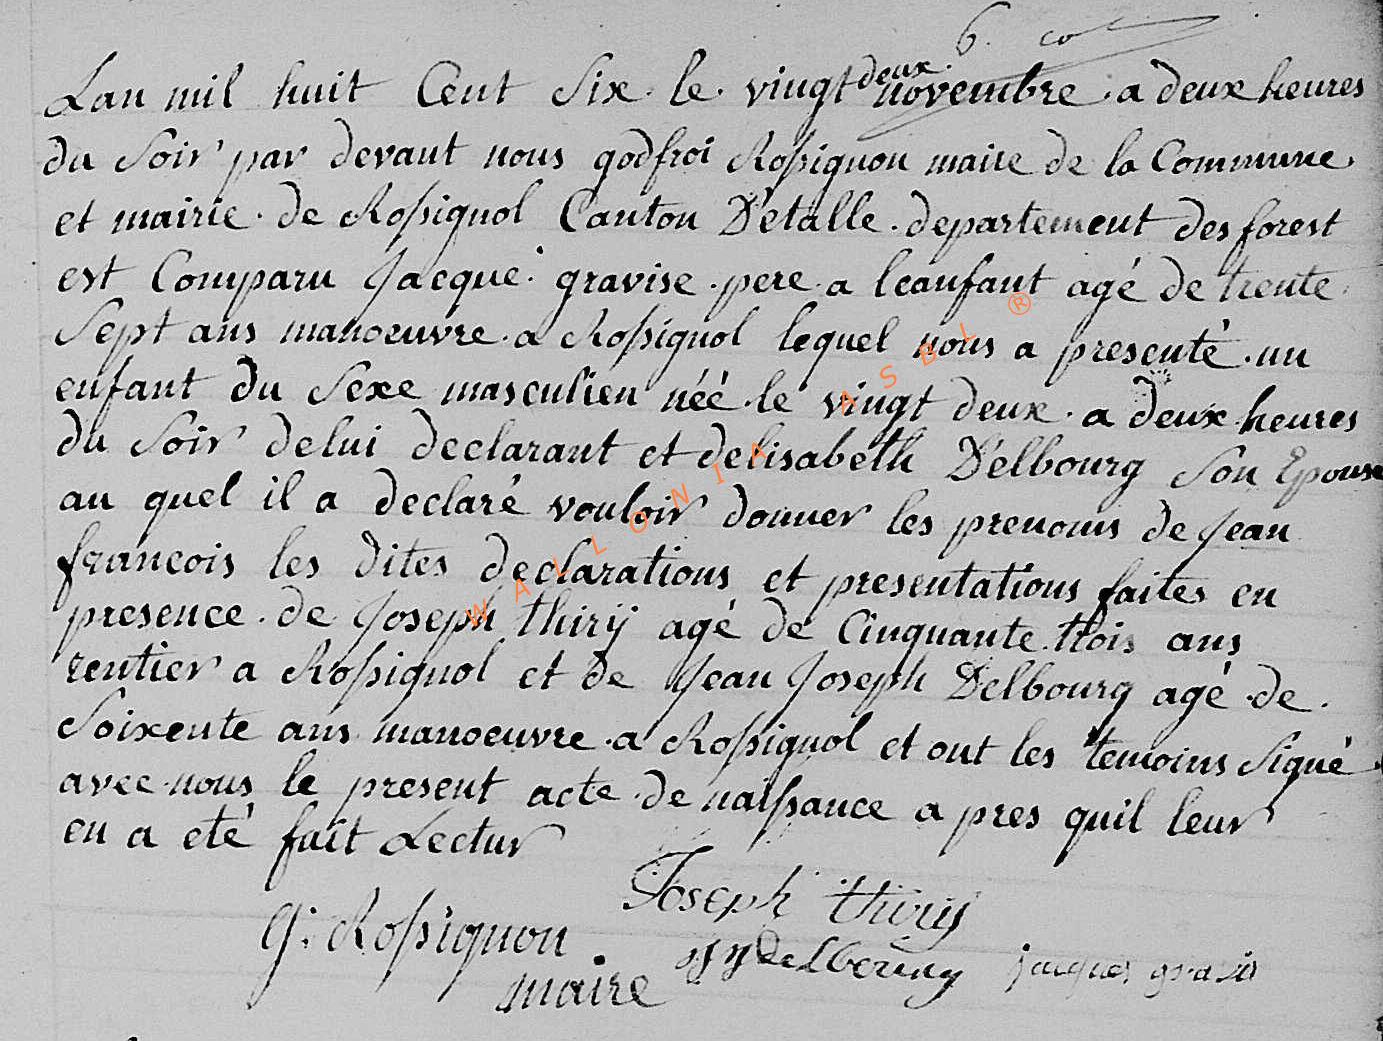 6.
Lan mil huit Cent Six. le. vingt deux. novembre. a deux heures
du Soir par devant nous godfroi Rossignon maire de la Commune
et mairie. de Rossignol Canton D'etalle. departement des forest
est Comparu Jacque gravise. pere a leanfant agé de trente
Sept ans manoeuvre. a Rossignol lequel nous a presenté. un
enfant du Sexe masculien néé. le vingt deux. a deux heures
du Soir delui declarant et delisabeth D'elbourg Son Epouse
au quel il a declaré vouloir donner les prenoms de Jean
francois les dites declarations et presentations faites en
presence. de Joseph thirÿ agé de Cinquante. trois ans
rentier a Rossignol et de Jean Joseph Delbourg agé de.
Soixente ans manoeuvre. a Rossignol et ont les temoins Signé.
avec nous le present acte. de naissance a pres quil leur
en a eté fait Lectur
Joseph thirÿ
G. Rossignon
maire
jj delbourg
jacques gravis
WALLONIA ASBL ®